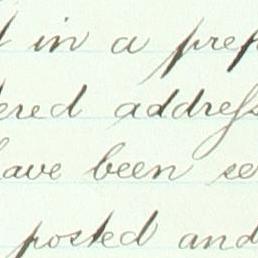 in a pref
ered address
have been se
posted and